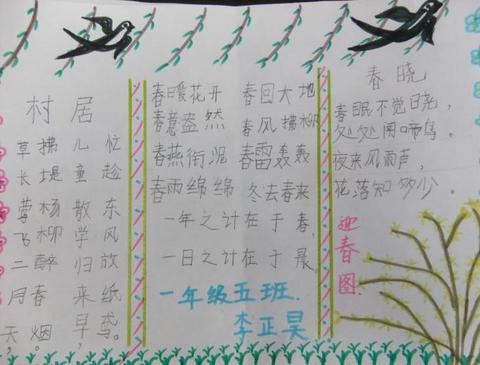 村居
草长莺飞二月天，
拂堤杨柳醉春烟。
儿童散学归来早，
忙趁东风放纸鸢。
春暖花开 春回大地
春意盎然 春风拂柳
春燕衔泥 春雷轰轰
春雨绵绵 冬去春来
一年之计在于春，
一日之计在于晨。
一年级五班.
李正昊
春晓
春眠不觉晓，
处处闻啼鸟。
夜来风雨声，
花落知多少。
迎春图.